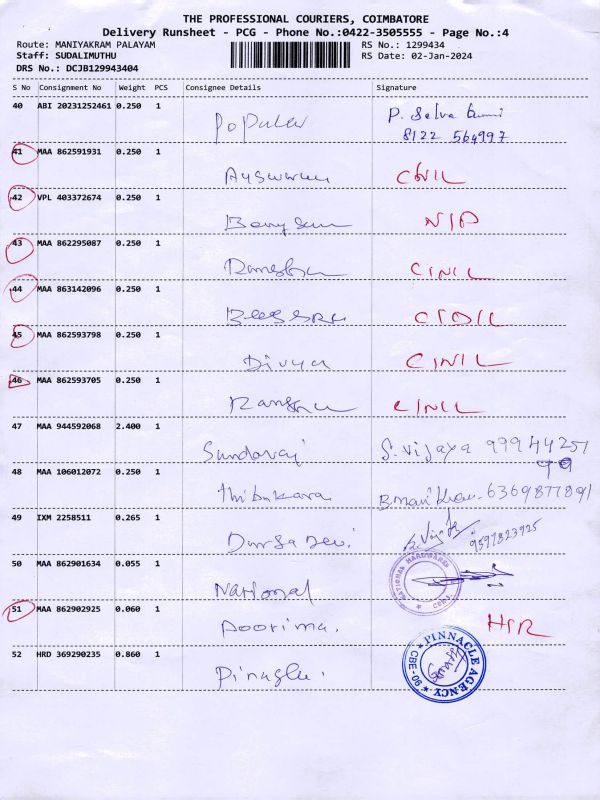 THE PROFESSIONAL COURIERS, COIMBATORE
Delivery Runsheet - PCG - Phone No.:0422-3505555 - Page No.:4
Route: MANIYAKRAM PALAYAM
RS No.: 1299434
Staff: SUDALIMUTHU
RS Date: 02-Jan-2024
DRS No.: DCJB129943404
S No Consignment No Weight PCS Consignee Details Signature
40 ABI 20231252461 0.250 1
Popular P. Selva
8122 564997
41 MAA 862591931 0.250 1
42 VPL 403372674 0.250 1
43 MAA 862295087 0.250 1
CINIL
44 MAA 863142096 0.250 1
45 MAA 862593798 0.250 1
Divya CINIL
46 MAA 862593705 0.250 1
CINIL
47 MAA 944592068 2.400 1
Sundaraj S. Vijaya 999 44257
99
48 MAA 106012072 0.250 1
Thibakara 6369877891
49 IXM 2258511 0.265 1
Durga Devi 9597823925
50 MAA 862901634 0.055 1
National NATIONAL HARDWARES
51 MAA 862902925 0.060 1
Poorima.
52 HRD 369290235 0.860 1
PINNACLE AGENCY
CBE-06